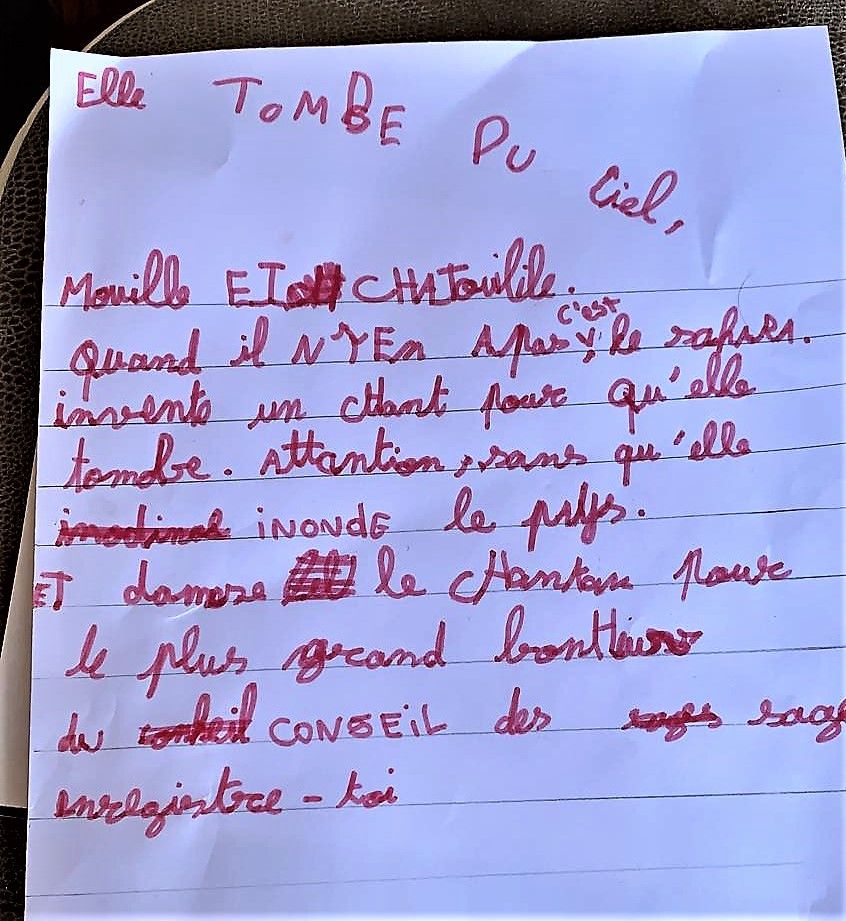 Elle TOMBE DU Ciel,
Mouille ET CHATouilile.
Quand il N'Y En A pas c'est le
invente un cHant pour qu'elle
tombe. Attantion, sans qu'elle
iNONdE le pays.
ET damse le cHantan pour
le plus grand bonHeur
du CONSEiL des sage
enregistre-toi